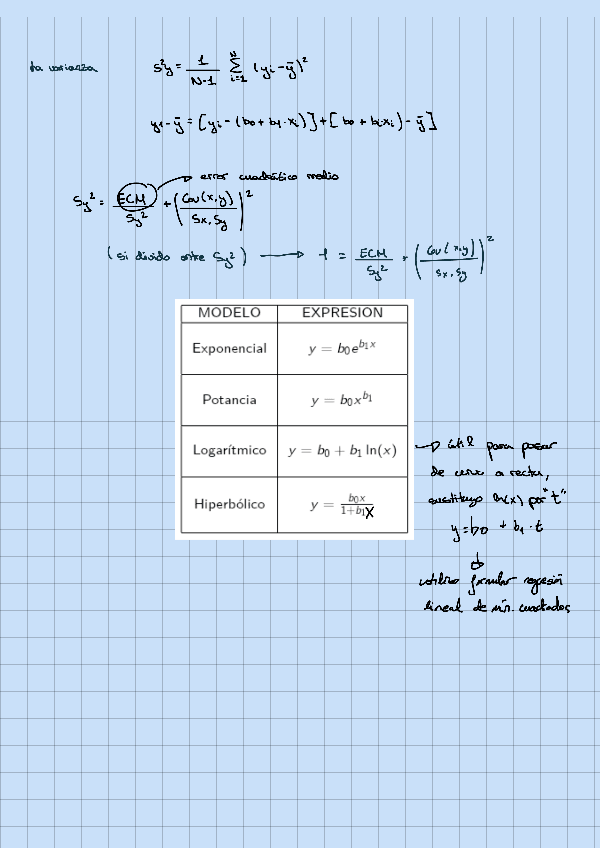 la varianza S²y = 1/(N-1) N Σ i=1 (yi - ȳ)²
yi - ȳ = [yi - (b0 + b1·xi)] + [b0 + b1·xi) - ȳ]
→ error cuadrático medio
Sy² = ECM/Sy² + (Cov(x,y)/Sx,Sy)²
(si divido entre Sy²) → 1 = ECM/Sy² + (Cov(x,y)/Sx,Sy)²
MODELO EXPRESION
Exponencial y = b₀e^(b₁x)
Potancia y = b₀x^(b₁)
Logarítmico y = b₀ + b₁ ln(x)
Hiperbólico y = b₀x/(1+b₁x)
→ útil para pasar
de curva a recta,
sustituyo ln(x) por "t"
y = b0 + b1·t
↓
utilizo formular regresión
lineal de mín. cuadrados